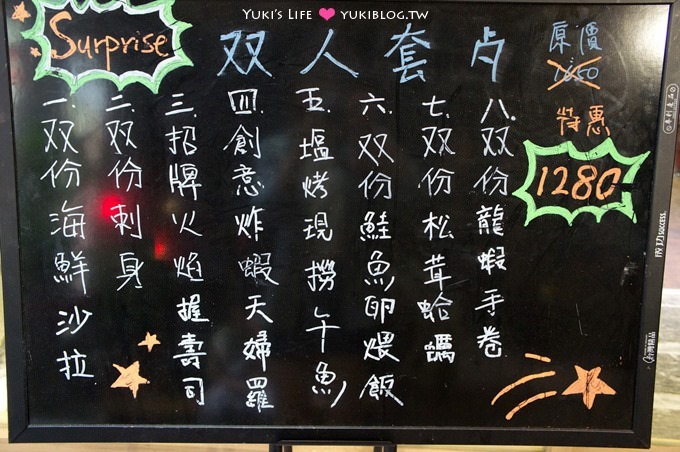 Yuki's Life ❤ yukiblog.tw
Surprise
双人套卢
原價
1650
特惠
1280
一.双份海鮮沙拉
二.双份刺身
三.招牌火焰握壽司
四.創意炸蝦天婦羅
五.塩烤現撈午魚
六.双份鮭魚卵煨飯
七.双份松茸蛤蠣
八.双份龍蝦手卷